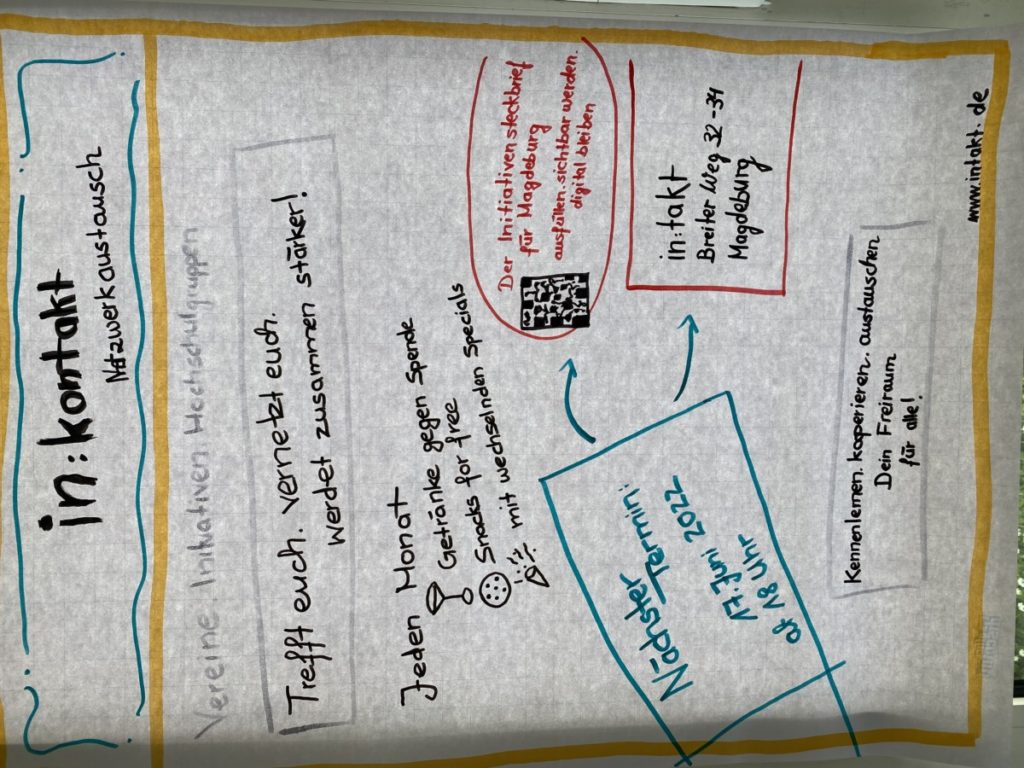 in:kontakt
Netzwerkaustausch
Vereine. Initiativen. Hochschulgruppen
Trefft euch. vernetzt euch.
werdet zusammen stärker!
Jeden Monat
Getränke gegen Spende
Snacks for free
mit wechselnden Specials
Der Initiativensteckbrief
für Magdeburg
ausfüllen. sichtbar werden.
digital bleiben
Nächster
Termin:
17. Juni 2022
ab 18 Uhr
in:takt
Breiter Weg 32-34
Magdeburg
Kennenlernen. kooperieren. austauschen
Dein Freiraum
für alle!
www.intakt.de